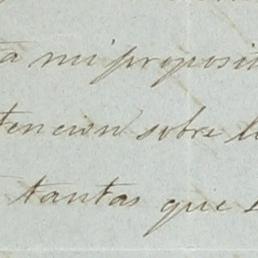 mi proposit
tencion sobre l
tantas que